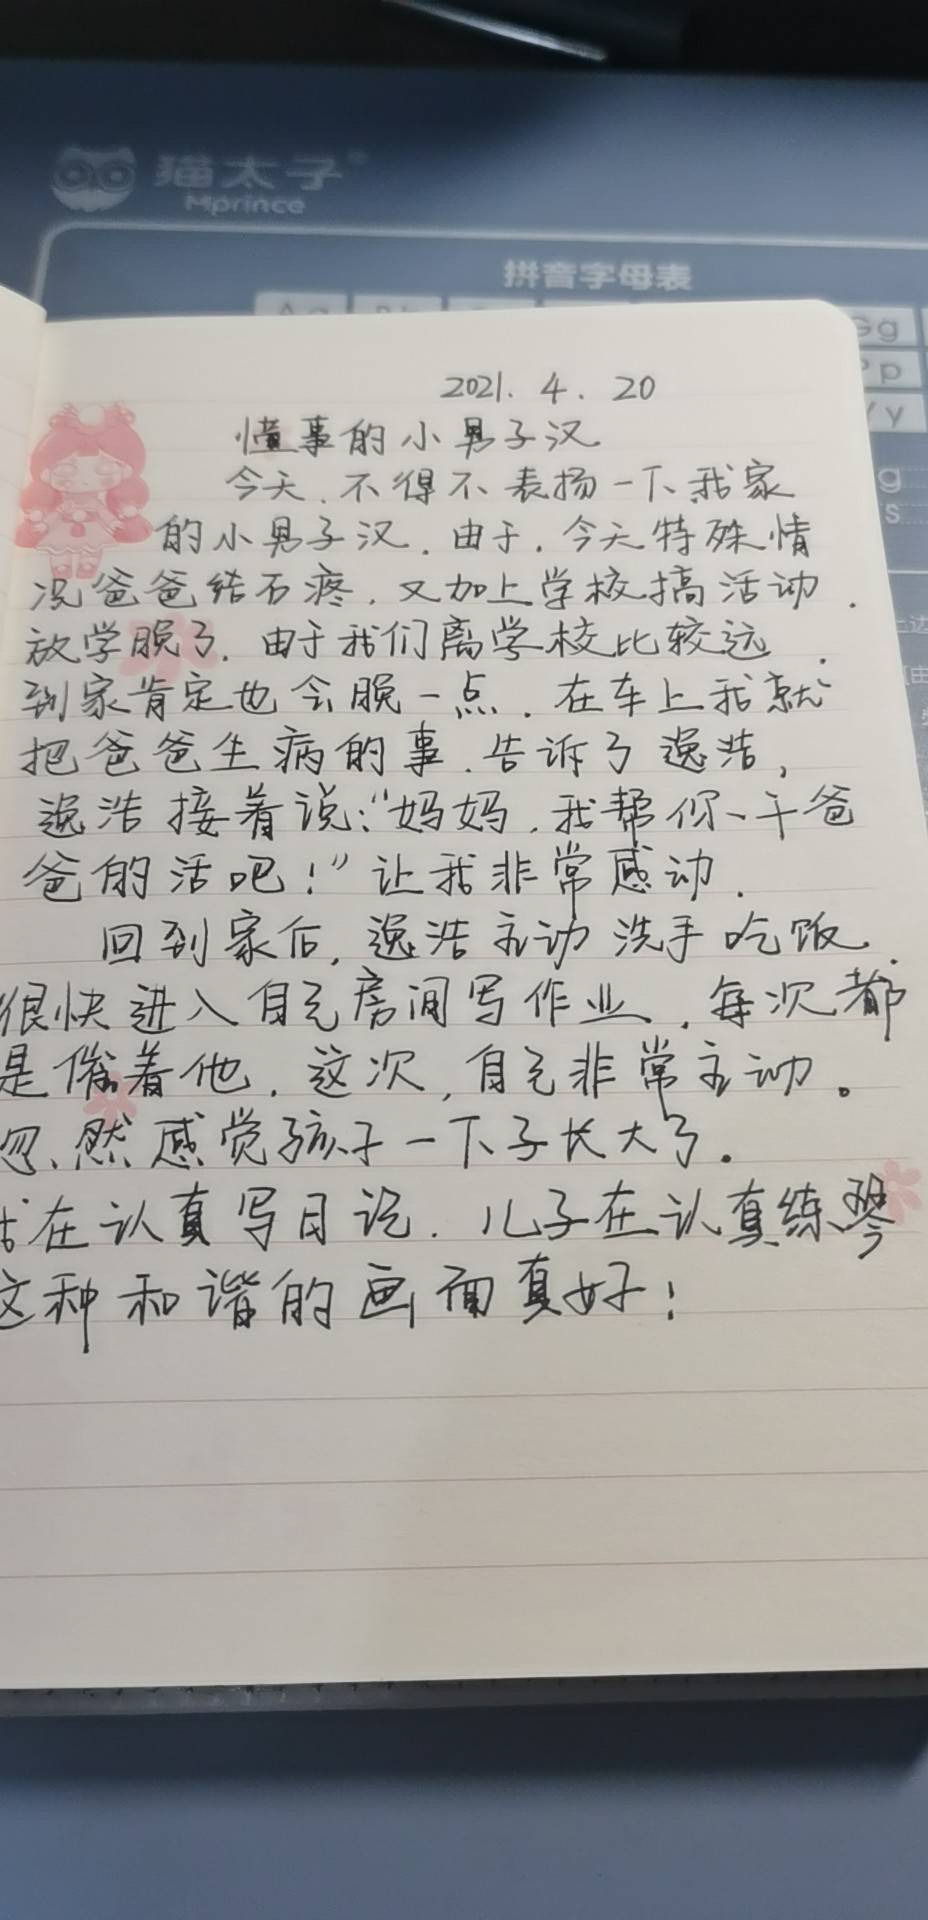 猫太子
Mprince
拼音字母表
Gg
Pp
Yy
g
s
2021.4.20
懂事的小男子汉
今天.不得不表扬一下.我家
的小男子汉.由于.今天特殊情
况爸爸结石疼.又加上学校搞活动.
放学晚了.由于我们离学校比较远.
到家肯定也会晚一点.在车上我就
把爸爸生病的事.告诉了逸浩,
逸浩接着说:“妈妈.我帮你、干爸
爸的活吧!”让我非常感动.
回到家后,逸浩主动洗手吃饭.
很快进入自己房间写作业.每次都
是催着他.这次,自己非常主动。
忽然感觉孩子一下子长大了.
在认真写日记.儿子在认真练琴
这种和谐的画面真好!